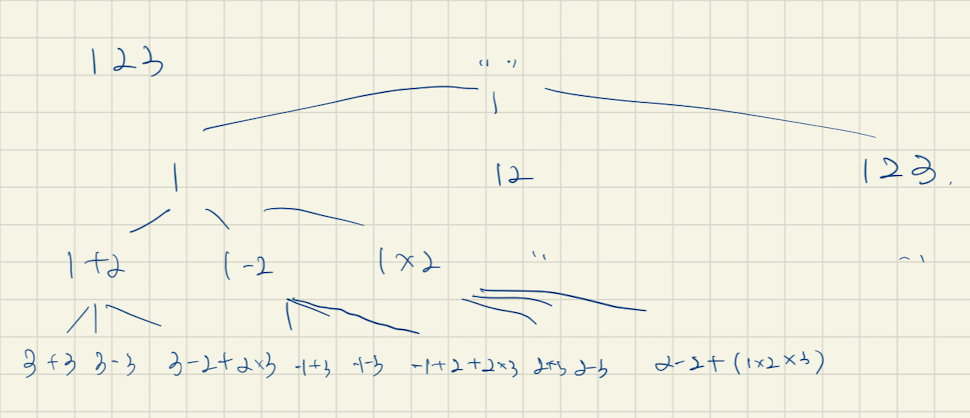 123 " "
1 12 123.
1+2 1-2 1×2
3+3 3-3 3-2+2×3 -1+3 -1-3 -1+2+2×3 2+3 2-3 2-2+(1×2×3)